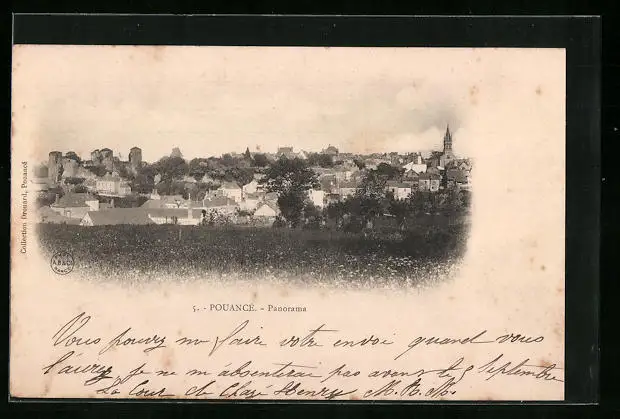 Collection Drouard, Pouancé
5. - POUANCÉ. - Panorama
Vous pouvez me faire votre envoi quand vous
l'aurez je ne m'absenterai pas avant le 8 septembre
La Cour de Clazé Henry M. R. M.